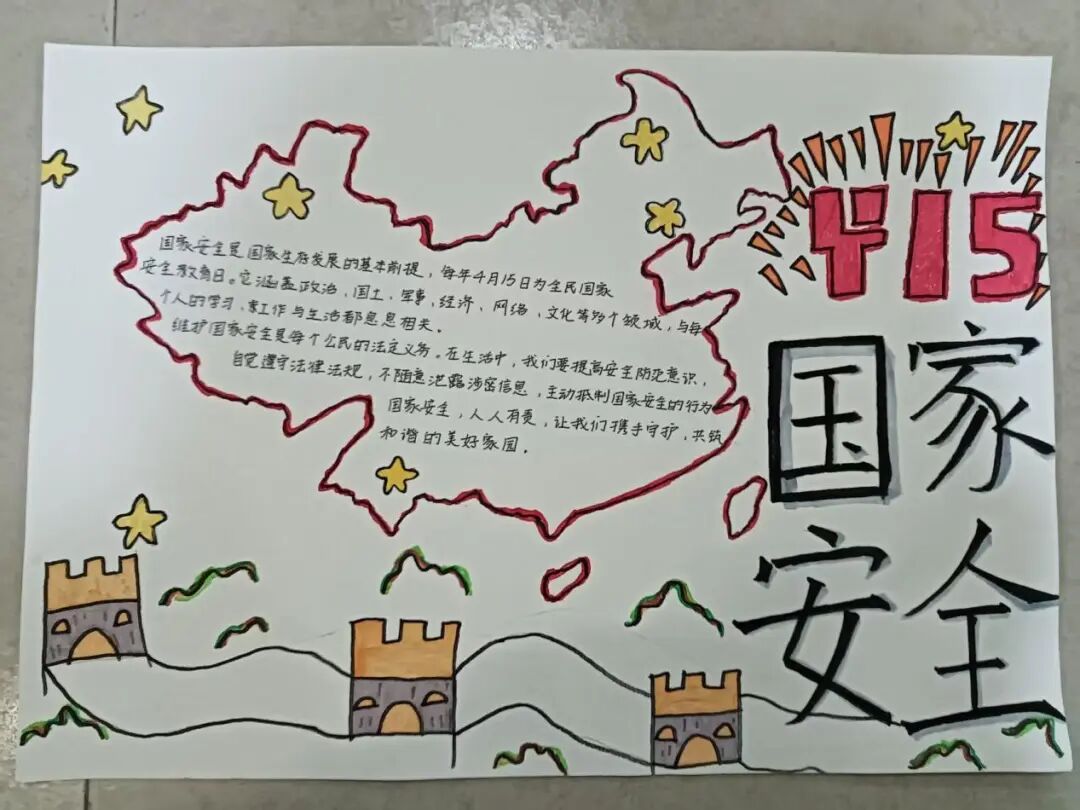 国家安全是国家生存发展的基本前提，每年4月15日为全民国家
安全教育日。它涵盖政治、国土、军事、经济、网络、文化等多个领域，与每
个人的学习、工作与生活都息息相关。
维护国家安全是每个公民的法定义务。在生活中，我们要提高安全防范意识，
自觉遵守法律法规，不随意泄露涉密信息，主动抵制国家安全的行为
国家安全，人人有责，让我们携手守护，共筑
和谐的美好家园。
415
国家
安全